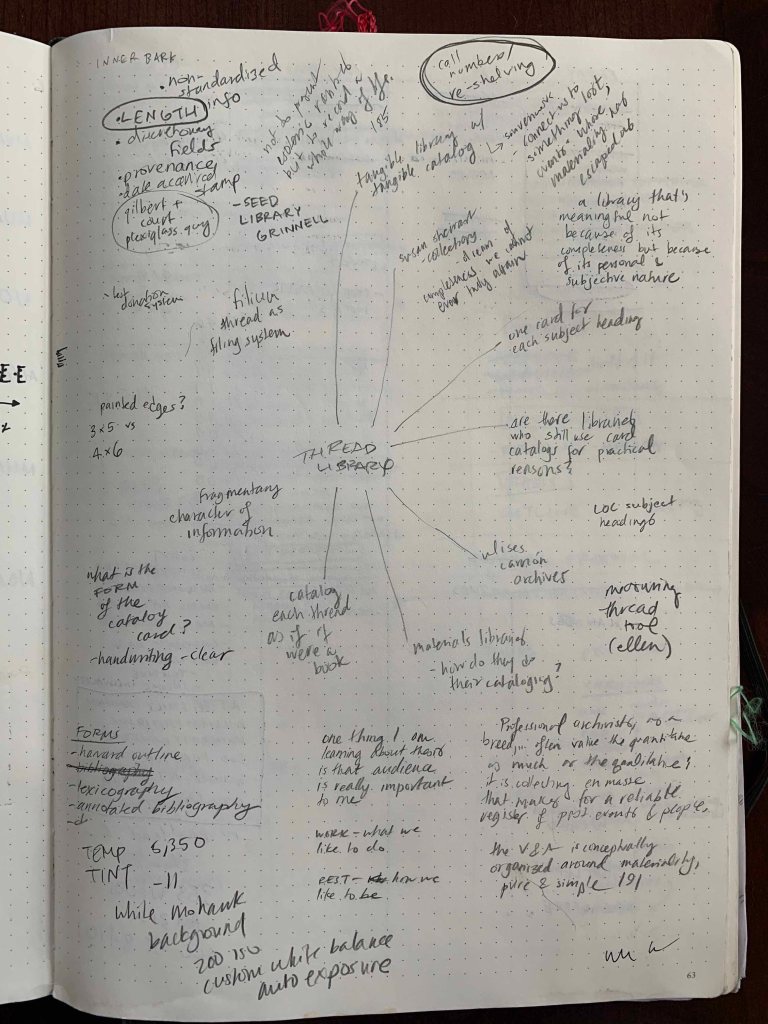 INNER BARK
• non-
standardized
info
• LENGTH
• discretionary
fields
• provenance
• date acquired
stamp
gilbert +
court
plexiglass guy
- SEED
LIBRARY
GRINNELL
not to permit
but to record a
whole way of life.
185
call
numbers/
re-shelving!
tangible library w/
tangible catalog
connect us to
something lost,
whose
materiality has
escaped us
a library that's
meaningful not
because of its
completeness but because
of its personal &
subjective nature
susan stewart
- collections
dream of
completeness we cannot
ever truly attain
donation
system
filium
thread as
filing system
one card for
each subject heading
painted edges?
3x5 vs
4x6
THREAD
LIBRARY
are there libraries
who still use card
catalogs for practical
reasons?
fragmentary
character of
information
LOC subject
headings
ulises
carrión
archives
what is the
FORM
of the
catalog
card?
- handwriting - clear
catalog
each thread
as if it
were a
book
materials libraries
- how do they do
their cataloging?
measuring
thread
tool
(ellen)
FORMS
- harvard outline
- bibliography
- lexicography
- annotated bibliography
one thing I am
learning about
is that audience
is really important
to me
Professional archivists, as a
breed,... often value the quantitative
as much as the qualitative;
it is collecting en masse
that makes for a reliable
register of past events & people.
TEMP 5,350
TINT -11
WORK - what we
like to do
REST - how we
like to be
the V&A is conceptually
organized around materiality,
pure & simple 191
white mohawk
background
200 ISO
custom white balance
auto exposure
63